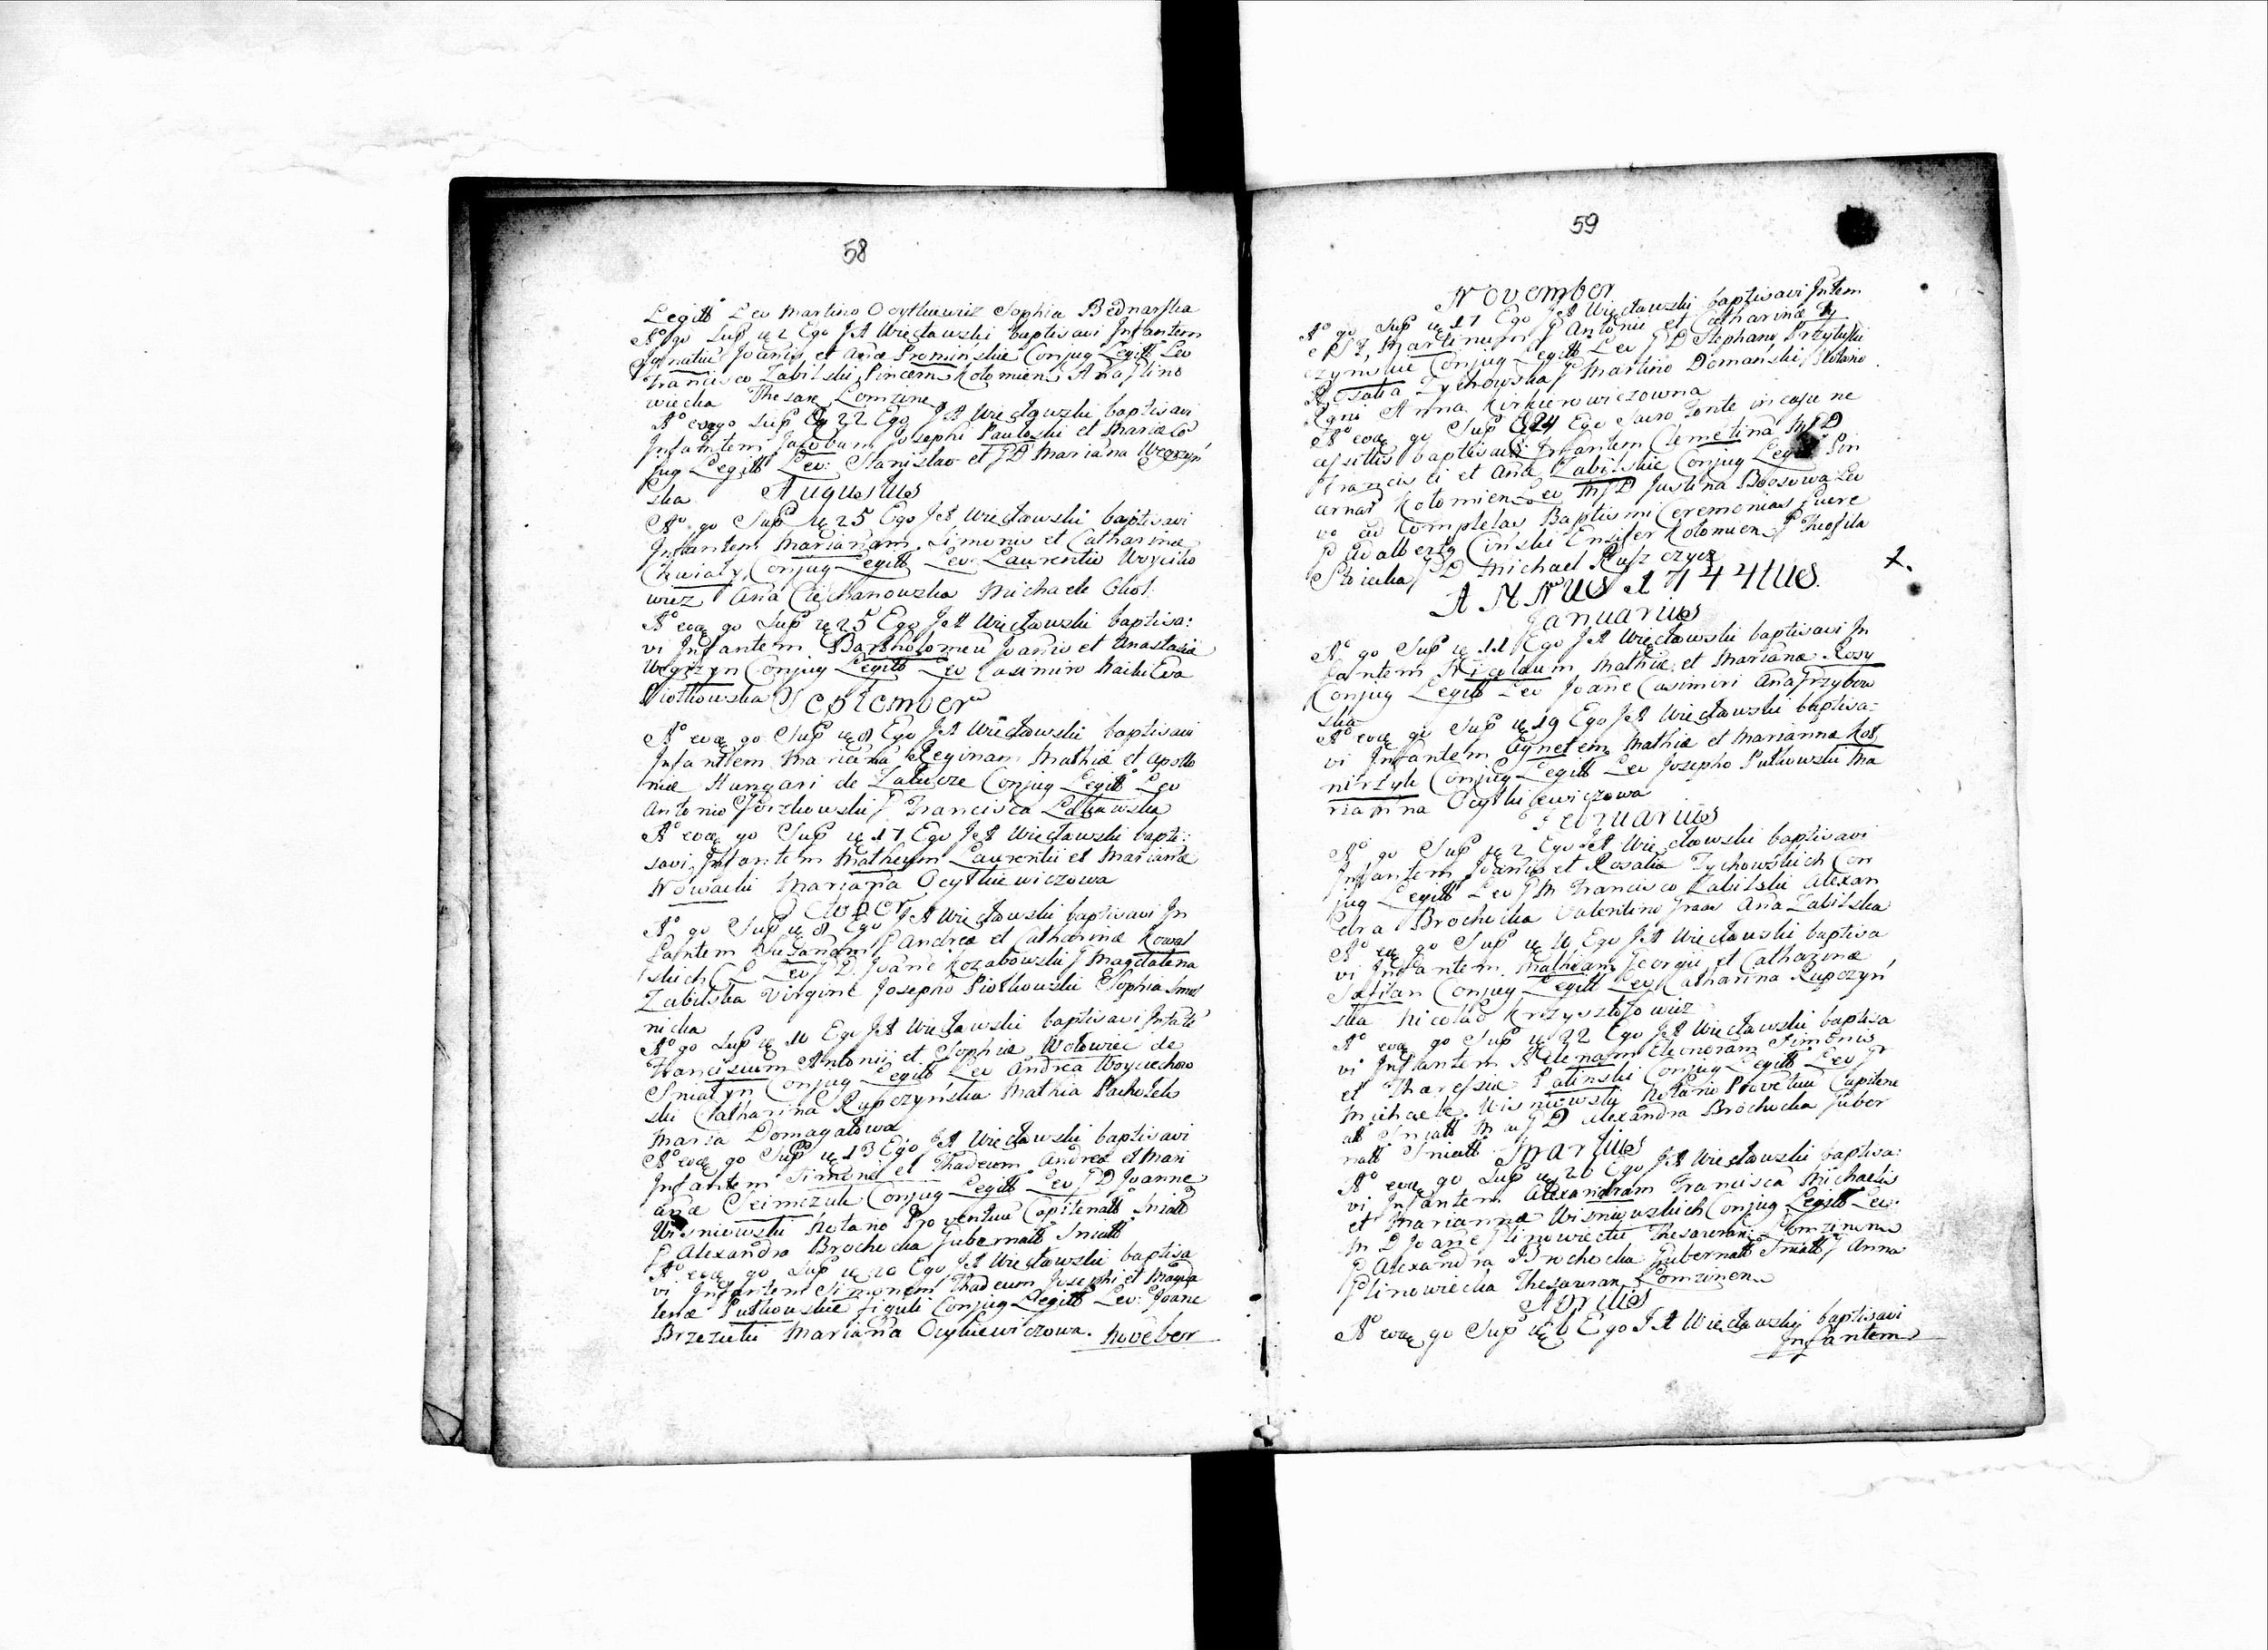 58
Legitt Lev Martino Ocytkiewicz Sophia Bednarska
Aº go Sup 2 Ego J A Więcławski baptisavi Infantem
Ignatiū Joanis et Anæ Promińskie Conjug Legitt Lev
Francisco Zabilski Pincern Kołomien Ana Jlino
wiecka Thesar Łomzinen
Aº eoq go Sup 22 Ego J A Więcławski baptisavi
Infantem Jacobum Josephi Pauloski et Mariæ Co
jug Legitt Lev: Stanislao et J D Mariana Węgrzyń
ska
Augustus
Aº go Sup 25 Ego J A Więcławski baptisavi
Infantem Marianam Simonis et Catharinæ
Chwiały Conjug Legitt Lev Laurentio Woyciko
wicz Ana Ciechanowska Michaele
Aº eoq go Sup 25 Ego J A Więcławski baptisa:
vi Infantem Bartholomeū Joanis et Anastasiæ
Węgrzyn Conjug Legitt Lev Casimiro Eva
Piotkowska
September
Aº eoq go Sup 8 Ego J A Więcławski baptisavi
Infantem Marianā Reginam Mathiæ et Apollo
niæ Hungari de Zalucze Conjug Legitt Lev
Antonio Gorzkowski Francisca
Aº eoq go Sup 17 Ego J A Więcławski bapti:
savi Infantem Matheum Laurentii et Marianæ
Nowacki Mariana Ocytkiewiczowa
October
Aº go Sup 8 Ego J A Więcławski baptisavi In
fantem Susanam Andreæ et Catharinæ Kowal
skich C L Lev J D Joane Kozabowski Magdalena
Zabilska Virgine Josepho Piotkowski Sophia
nicka
Aº go Sup 10 Ego J A Więcławski baptisavi Infatē
Franciscum Antonii et Sophiæ Wołowiec de
Sniatyn Conjug Legitt Lev Andrea Woyciechow
ski Catharina Rupczyńska Mathia
Maria Domagałowa
Aº eoq go Sup 13 Ego J A Więcławski baptisavi
Infantem Simonē et Thadeum Andreæ et Mari
anæ Seimczuk Conjug Legitt Lev J D Joanne
Wisniowski Notario Proventuū Capitenatt Sniatt
Alexandra Brochocka Gubernatt Sniatt
Aº eoq go Sup 20 Ego J A Więcławski baptisa
vi Infantem Simonem Thadeum Josephi et Magda
lenæ Putkowskie figuli Conjug Legitt Lev: Joane
Brzezicki Mariana Ocytkiewiczowa. Novēber
59
November
Aº go Sup 17 Ego J A Więcławski baptisavi Intem
Martinum Antonii et Catharinæ Ty
czynskie Conjug Legitt Lev J D Stephano Przybylski
Rosalia Tychowska Martino Domański
Anna Kirkierowiczowna
Aº eoq go Sup 24 Ego Sacro Fonte in casu ne
cessittis baptisavi Infantem Clemetinā M D
Francisci et Anæ Zabilskie Conjug Legitt Pin
cernar Kołomien Lev M J D Justina Bososowa Lev
vo ad completas Baptismi Ceremonias fuere
Adalberto Ciński Ensifer Kołomien Theofila
J D Michael Rupczycz
ANNUS 1744tus.
Januarius
Aº go Sup 11 Ego J A Więcławski baptisavi In
fantem Nicolaum Mathiæ et Marianæ Rosy
Conjug Legitt Lev Joane Casimiri Ana Grzybow
ska
Aº eoq go Sup 19 Ego J A Więcławski baptisa-
vi Infantem Agnetem Mathiæ et Mariannæ Koł
nirzyk Conjug Legitt Lev Josepho Putkowski Ma
rianna Ocytkiewiczowa
Februarius
Aº go Sup 2 Ego J A Więcławski baptisavi
Infantem Joanis et Rosaliæ Tychowskich Con
jug Legitt Lev J M Francisco Zabilski Alexan
dra Brochocka Valentino Ana Zabilska
Aº eoq go Sup 10 Ego J A Więcławski baptisa
vi Infantem Mathiam Georgii et Catharinæ
Conjug Legitt Lev Catharina Rupczyń
ska Nicolao Krzysztofowicz
Aº eoq go Sup 22 Ego J A Więcławski baptisa
vi Infantem Eleonoram Simonis
et Theressiæ Palinski Conjug Legitt Lev
Michaele Wisniowski Notario Proventuū Capitene
att Sniatt M D Alexandra Brochocka Guber
natt Sniatt
Martius
Aº eoq go Sup 20 Ego J A Więcławski baptisa:
vi Infantem Alexandram Francisca Michaelis
et Mariannæ Wisniowskich Conjug Legitt Lev:
M D Joane Jlinowiecki Thesauran Łomzinens
Alexandra Brochocka Gubernatt Sniatt Anna
Jlinowiecka Thesauran Łomzinen
Aprilis
Aº eoq go Sup 6 Ego J A Więcławski baptisavi
Infantem